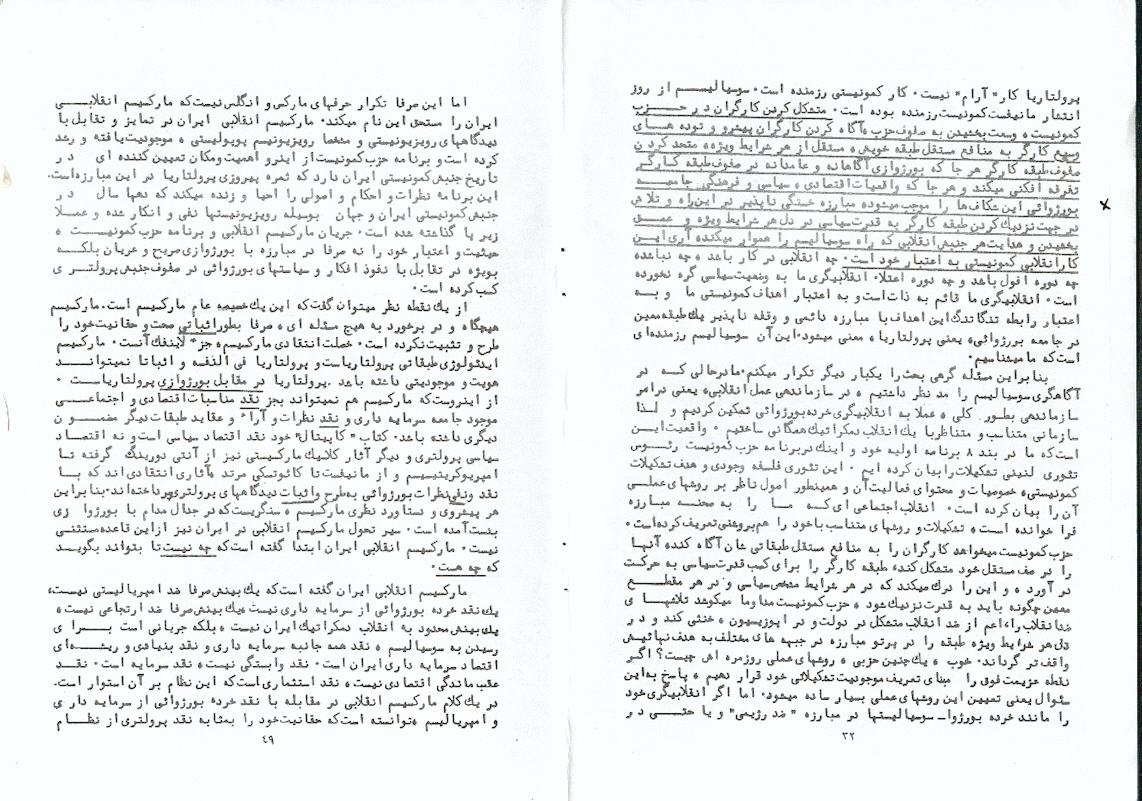 پرولتاریا کار "آرام" نیست. کار کمونیستی رزمنده است. سوسیالیسم از روز
انتشار مانیفست کمونیست رزمنده بوده است. متشکل کردن کارگران در حزب
کمونیست، وسعت بخشیدن به صفوف حزب، آگاه کردن کارگران پیشرو و توده های
وسیع کارگر به منافع مستقل طبقه خویش، مستقل از هر شرایط ویژه، متحد کردن
صفوف طبقه کارگر هر جا که بورژوازی آگاهانه و عامدانه در صفوف طبقه کارگر
تفرقه افکنی میکند و هر جا که واقعیات اقتصادی، سیاسی و فرهنگی جامعه
بورژوائی این شکاف ها را موجب میشود، مبارزه خستگی ناپذیر در این راه و تلاش
در جهت نزدیک کردن طبقه کارگر به قدرت سیاسی در دل هر شرایط ویژه و عمق
بخشیدن و هدایت هر جنبش انقلابی که راه سوسیالیسم را هموار میکند، آری این
کار انقلابی کمونیستی به اعتبار خود است. چه انقلابی در کار باشد، چه نباشد
چه دوره افول باشد و چه دوره اعتلا. انقلابیگری ما به وضعیت سیاسی گره نخورده
است. انقلابیگری ما قائم به ذات است و به اعتبار اهداف کمونیستی ما و به
اعتبار رابطه تنگاتنگ این اهداف با مبارزه دائمی و وقفه ناپذیر یک طبقه معین
در جامعه بورژوائی، یعنی پرولتاریا، معنی میشود. این آن سوسیالیسم رزمنده ای
است که ما میشناسیم.
بنابراین مسئله گرهی بحث را یکبار دیگر تکرار میکنم. ما در حالی که در
آگاهگری سوسیالیسم را مد نظر داشتیم، در سازماندهی عمل انقلابی، یعنی در امر
سازماندهی بطور کلی، عملا به انقلابیگری خرده بورژوائی تمکین کردیم و لذا
سازمانی متناسب و متناظر با یک انقلاب دمکراتیک همگانی ساختیم. واقعیت این
است که ما در بند ۸ برنامه اولیه خود و اینک در برنامه حزب کمونیست رئوس
تئوری لنینی تشکیلات را بیان کرده ایم. این تئوری فلسفه وجودی و هدف تشکیلات
کمونیستی، خصوصیات و محتوای فعالیت آن و همینطور اصول ناظر بر روشهای عملی
آن را بیان کرده است. انقلاب اجتماعی ای که ما را به صحنه مبارزه
فرا خوانده است، تشکیلات و روشهای متناسب با خود را هم بروشنی تعریف کرده است.
حزب کمونیست میخواهد کارگران را به منافع مستقل طبقاتی شان آگاه کند، آنها
را در صف مستقل خود متشکل کند، طبقه کارگر را برای کسب قدرت سیاسی به حرکت
در آورد، و این را درک میکند که در هر شرایط مشخص سیاسی و در هر مقطع
معین چگونه باید به قدرت نزدیک شود، حزب کمونیست مداوما میکوشد تلاشهای
ضد انقلاب را، اعم از ضد انقلاب متشکل در دولت و در اپوزیسیون، خنثی کند و در
دل هر شرایط ویژه طبقه را در پرتو مبارزه در جبهه های مختلف به هدف نهائیش
واقف تر گرداند. خوب، یک چنین حزبی، روشهای عملی روزمره اش چیست؟ اگر
نقطه عزیمت فوق را مبنای تعریف موجودیت تشکیلاتی خود قرار دهیم، پاسخ به این
سئوال یعنی تعیین این روشهای عملی بسیار ساده میشود. اما اگر انقلابیگری خود
را مانند خرده بورژوا-سوسیالیستها در مبارزه "ضد رژیمی" و یا حتی در
۳۲
اما این صرفا تکرار حرفهای مارکس و انگلس نیست که مارکسیسم انقلابی
ایران را مستحق این نام میکند. مارکسیسم انقلابی ایران در تمایز و تقابل با
دیدگاههای رویزیونیستی و مشخصا رویزیونیسم پوپولیستی، موجودیت یافته و رشد
کرده است و برنامه حزب کمونیست از اینرو اهمیت و مکان تعیین کننده ای در
تاریخ جنبش کمونیستی ایران دارد که ثمره پیروزی پرولتاریا در این مبارزه است.
این برنامه نظرات و احکام و اصولی را احیا و زنده میکند که دهها سال در
جنبش کمونیستی ایران و جهان بوسیله رویزیونیستها نفی و انکار شده و عملا
زیر پا گذاشته شده است. جریان مارکسیسم انقلابی و برنامه حزب کمونیست،
حیثیت و اعتبار خود را نه صرفا در مبارزه با بورژوازی صریح و عریان بلکه
بویژه در تقابل با نفوذ افکار و سیاستهای بورژوائی در صفوف جنبش پرولتری
کسب کرده است.
از یک نقطه نظر میتوان گفت که این یک خصیصه عام مارکسیسم است. مارکسیسم
هیچگاه، و در برخورد به هیچ مسئله ای، صرفا بطور اثباتی صحت و حقانیت خود را
طرح و تثبیت نکرده است. خصلت انتقادی مارکسیسم، جزء لاینفک آنست. مارکسیسم
ایدئولوژی طبقاتی پرولتاریاست و پرولتاریا فی الذفه و اثباتا نمیتواند
هویت و موجودیتی داشته باشد. پرولتاریا در مقابل بورژوازی پرولتاریاست.
از اینروست که مارکسیسم هم نمیتواند بجز نقد مناسبات اقتصادی و اجتماعی
موجود جامعه سرمایه داری و نقد نظرات و آراء و عقاید طبقات دیگر مضمون
دیگری داشته باشد. کتاب "کاپیتال" خود نقد اقتصاد سیاسی است و نه اقتصاد
سیاسی پرولتری و دیگر آثار کلاسیک مارکسیستی نیز از آنتی دورینگ گرفته تا
امپریوکریتیسیسم و از مانیفست تا کائوتسکی مرتد، آثاری انتقادی اند که با
نقد و نفی نظرات بورژوائی به طرح و اثبات دیدگاههای پرولتری پرداخته اند. بنابراین
هر پیشروی و دستاورد نظری مارکسیسم، سنگریست که در جدال مدام با بورژوازی
بدست آمده است. سیر تحول مارکسیسم انقلابی در ایران نیز از این قاعده مستثنی
نیست. مارکسیسم انقلابی ایران ابتدا گفته است که چه نیست تا بتواند بگوید
که چه هست.
مارکسیسم انقلابی ایران گفته است که یک بینش صرفا ضد امپریالیستی نیست،
یک نقد خرده بورژوائی از سرمایه داری نیست، یک بینش صرفا ضد ارتجاعی نیست،
یک بینش محدود به انقلاب دمکراتیک ایران نیست، بلکه جریانی است برای
رسیدن به سوسیالیسم، نقد همه جانبه سرمایه داری و نقد بنیادی و ریشه ای
اقتصاد سرمایه داری ایران است. نقد وابستگی نیست، نقد سرمایه است. نقد
عقب ماندگی اقتصادی نیست، نقد استثماری است که این نظام بر آن استوار است.
در یک کلام مارکسیسم انقلابی در مقابله با نقد خرده بورژوائی از سرمایه داری
و امپریالیسم، توانسته است که حقانیت خود را بمثابه نقد پرولتری از نظام
۴۹